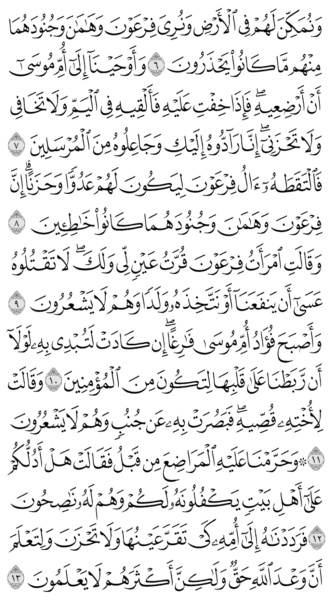 وَنُمَكِّنَ لَهُمْ فِي ٱلْأَرْضِ وَنُرِيَ فِرْعَوْنَ وَهَٰمَٰنَ وَجُنُودَهُمَا
مِنْهُم مَّا كَانُوا۟ يَحْذَرُونَ ٦ وَأَوْحَيْنَآ إِلَىٰٓ أُمِّ مُوسَىٰٓ
أَنْ أَرْضِعِيهِ ۖ فَإِذَا خِفْتِ عَلَيْهِ فَأَلْقِيهِ فِي ٱلْيَمِّ وَلَا تَخَافِي
وَلَا تَحْزَنِيٓ ۖ إِنَّا رَآدُّوهُ إِلَيْكِ وَجَاعِلُوهُ مِنَ ٱلْمُرْسَلِينَ ٧
فَٱلْتَقَطَهُۥٓ ءَالُ فِرْعَوْنَ لِيَكُونَ لَهُمْ عَدُوًّا وَحَزَنًا ۗ إِنَّ
فِرْعَوْنَ وَهَٰمَٰنَ وَجُنُودَهُمَا كَانُوا۟ خَٰطِـِٔينَ ٨
وَقَالَتِ ٱمْرَأَتُ فِرْعَوْنَ قُرَّتُ عَيْنٍ لِّي وَلَكَ ۖ لَا تَقْتُلُوهُ
عَسَىٰٓ أَن يَنفَعَنَآ أَوْ نَتَّخِذَهُۥ وَلَدًا وَهُمْ لَا يَشْعُرُونَ ٩
وَأَصْبَحَ فُؤَادُ أُمِّ مُوسَىٰ فَٰرِغًا ۖ إِن كَادَتْ لَتُبْدِي بِهِۦ لَوْلَآ
أَن رَّبَطْنَا عَلَىٰ قَلْبِهَا لِتَكُونَ مِنَ ٱلْمُؤْمِنِينَ ١٠ وَقَالَتْ
لِأُخْتِهِۦ قُصِّيهِ ۖ فَبَصُرَتْ بِهِۦ عَن جُنُبٍ وَهُمْ لَا يَشْعُرُونَ
١١ ۞ وَحَرَّمْنَا عَلَيْهِ ٱلْمَرَاضِعَ مِن قَبْلُ فَقَالَتْ هَلْ أَدُلُّكُمْ
عَلَىٰٓ أَهْلِ بَيْتٍ يَكْفُلُونَهُۥ لَكُمْ وَهُمْ لَهُۥ نَٰصِحُونَ
١٢ فَرَدَدْنَٰهُ إِلَىٰٓ أُمِّهِۦ كَيْ تَقَرَّ عَيْنُهَا وَلَا تَحْزَنَ وَلِتَعْلَمَ
أَنَّ وَعْدَ ٱللَّهِ حَقٌّ وَلَٰكِنَّ أَكْثَرَهُمْ لَا يَعْلَمُونَ ١٣